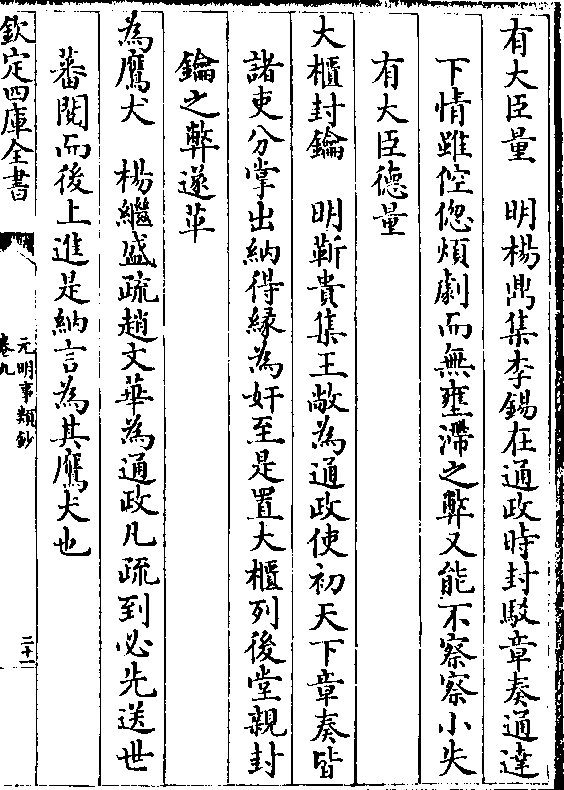 有大臣量　明楊鼎集李錫在通政時封駁章奏通達
下情雖倥偬煩劇而無壅滯之弊又能不察察小失
有大臣德量
大櫃封鑰　明靳貴集王敞為通政使初天下章奏皆
諸吏分掌出納得緣為奸至是置大櫃列後堂親封
鑰之弊遂革
為鷹犬　楊繼盛疏趙文華為通政凡疏到必先送世
蕃閱而後上進是納言為其鷹犬也
欽定四庫全書
元明事類鈔
卷九
二十一